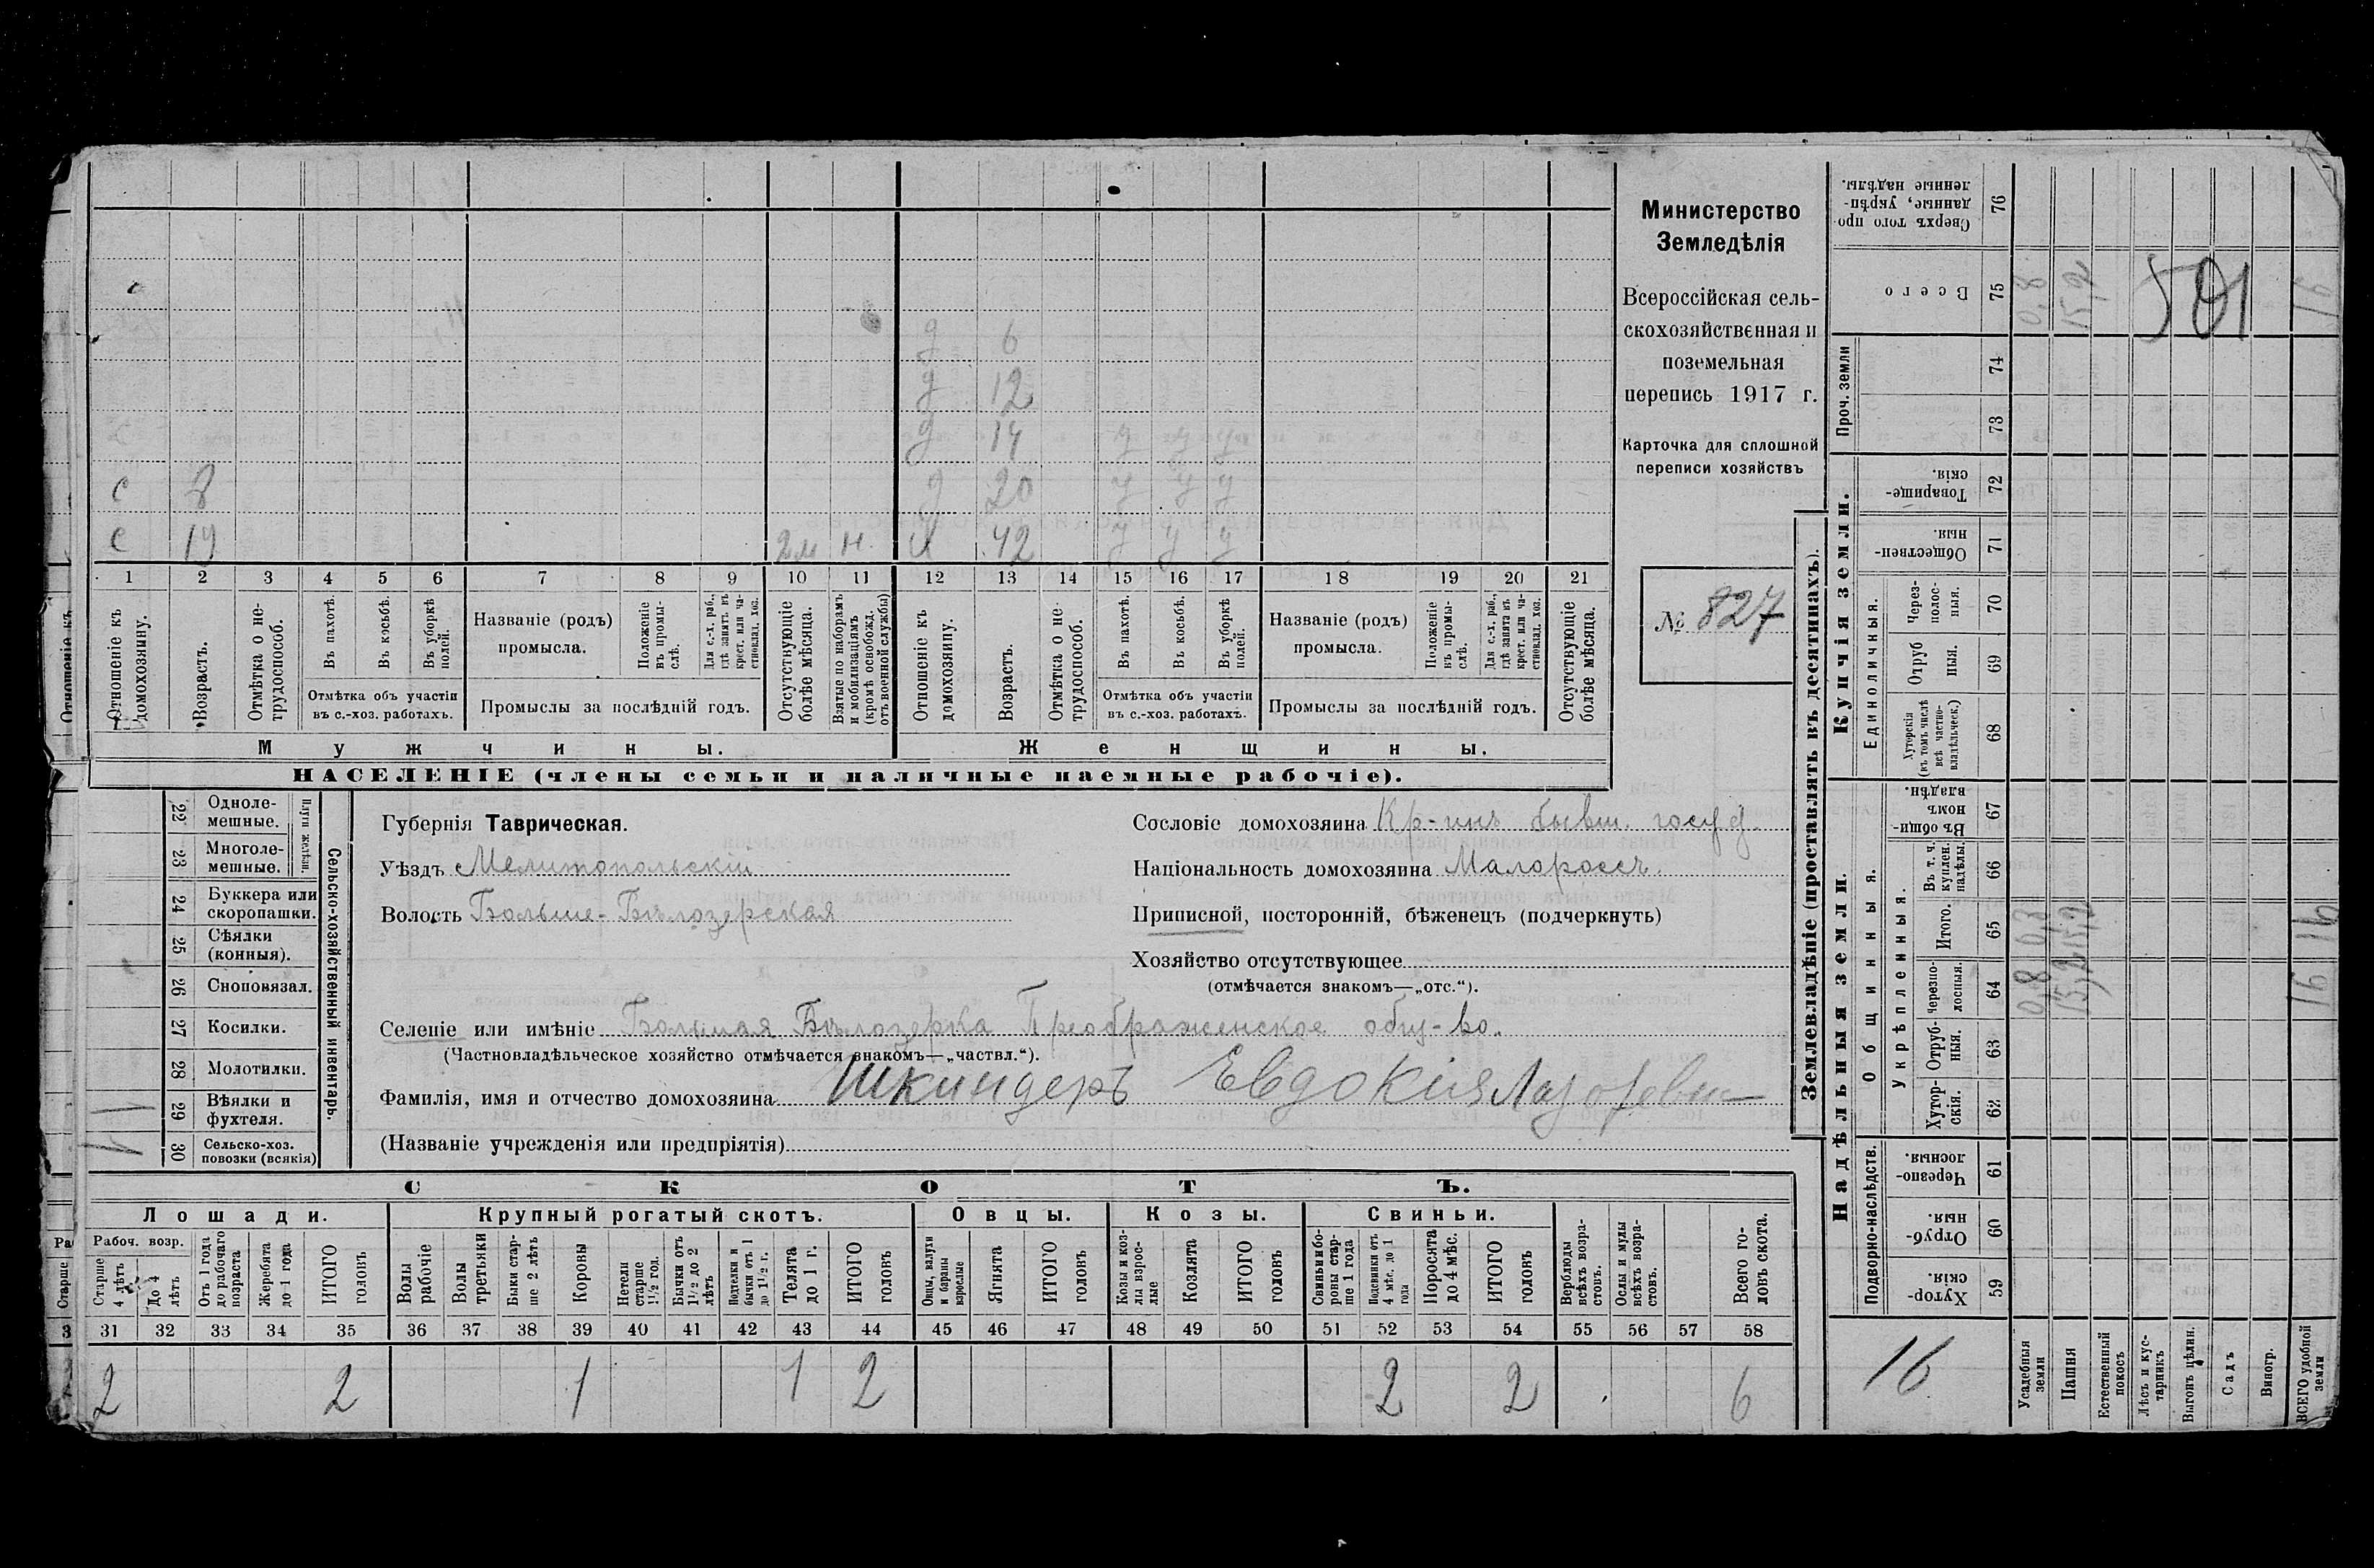 д 6
д 12
д 14 у у у
с 8 д 20 у у у
с 19 2м н. х 42 у у у
1 2 3 4 5 6 7 8 9 10 11 12 13 14 15 16 17 18 19 20 21
Отношеніе къ домохозяину.
Возрастъ.
Отмѣтка о нетрудоспособ.
Въ пахотѣ.
Въ косьбѣ.
Въ уборкѣ полей.
Отмѣтка объ участіи
въ с.-хоз. работахъ.
Названіе (родъ)
промысла.
Положеніе въ промыслѣ.
Для с.-х. раб., гдѣ занятъ въ крест. или частновлад. хоз.
Промыслы за послѣдній годъ.
Отсутствующіе болѣе мѣсяца.
Взятые по наборамъ и мобилизаціямъ (кромѣ освобожд. отъ военной службы)
Отношеніе къ домохозяину.
Возрастъ.
Отмѣтка о нетрудоспособ.
Въ пахотѣ.
Въ косьбѣ.
Въ уборкѣ полей.
Отмѣтка объ участіи
въ с.-хоз. работахъ.
Названіе (родъ)
промысла.
Положеніе въ промыслѣ.
Для с.-х. раб., гдѣ занята въ крест. или частновлад. хоз.
Промыслы за послѣдній годъ.
Отсутствующіе болѣе мѣсяца.
Мужчины.
Женщины.
НАСЕЛЕНІЕ (члены семьи и наличные наемные рабочіе).
Министерство
Земледѣлія
Всероссійская сель-
скохозяйственная и
поземельная
перепись 1917 г.
Карточка для сплошной
переписи хозяйствъ
№ 827
Сельско-хозяйственный инвентарь.
Плуги желѣзн.
22 Одноле-
мешные.
23 Многоле-
мешные.
24 Буккера или
скоропашки.
25 Сѣялки
(конныя).
26 Сноповязал.
27 Косилки.
28 Молотилки.
29 Вѣялки и
фухтеля.
1
30 Сельско-хоз.
повозки (всякія)
1
Губернія Таврическая.
Уѣздъ Мелитопольскій
Волость Больше-Бѣлозерская
Сословіе домохозяина Кр-инъ бывш. госуд.
Національность домохозяина Малороссъ.
Приписной, посторонній, бѣженецъ (подчеркнуть)
Хозяйство отсутствующее
(отмѣчается знакомъ—„отс.“).
Селеніе или имѣніе Большая Бѣлозерка Преображенское общ-во.
(Частновладѣльческое хозяйство отмѣчается знакомъ—„частвл.“).
Фамилія, имя и отчество домохозяина Шкиндеръ Евдокія
(Названіе учрежденія или предпріятія)
СКОТЪ.
Лошади. Крупный рогатый скотъ. Овцы. Козы. Свиньи.
Рабоч. возр.
Старше 4 лѣтъ
До 4 лѣтъ
Отъ 1 года до рабочаго возраста
Жеребята до 1 года
ИТОГО головъ
Волы рабочіе
Волы третьяки
Быки старше 2 лѣтъ
Коровы
Нетели старше 1½ год.
Бычки отъ 1½ до 2 лѣтъ
Подтелки и бычки отъ 1 до 1½ г.
Телята до 1 г.
ИТОГО головъ
Овцы, валухи и бараны взрослые
Ягнята
ИТОГО головъ
Козы и козлы взрослые
Козлята
ИТОГО головъ
Свиньи и боровы старше 1 года
Подсвинки отъ 4 мѣс. до 1 года
Поросята до 4 мѣс.
ИТОГО головъ
Верблюды всѣхъ возрастовъ.
Ослы и мулы всѣхъ возрастовъ.
Всего головъ скота.
31 32 33 34 35 36 37 38 39 40 41 42 43 44 45 46 47 48 49 50 51 52 53 54 55 56 57 58
2 2 1 1 2 2 2 6
Землевладѣніе (проставлять въ десятинахъ).
Купчія земли.
Надѣльныя земли.
Сверхъ того проданные, укрѣпленные надѣлы. 76
Всего 75 0,8 15,2 501 16
Проч. земли 74
73
Товарищескія. 72
Общественныя. 71
Единоличныя.
Черезполосныя. 70
Отрубныя. 69
Хуторскія (въ томъ числѣ всѣ частновладѣльческ.) 68
Общинныя.
Въ общинномъ владѣн. 67
Укрѣпленныя.
Въ т. ч. куплен. надѣлы. 66
Итого. 65 0,8 15,2 16
Черезполосныя. 64 0,8 15,2 16
Отрубныя. 63
Хуторскія. 62
Подворно-наслѣдств.
Черезполосныя. 61
Отрубныя. 60
Хуторскія. 59
16
Усадебныя земли
Пашня
Естественный покосъ
Лѣсъ и кустарникъ
Выгонъ цѣлин.
Садъ
Виногр.
ВСЕГО удобной земли